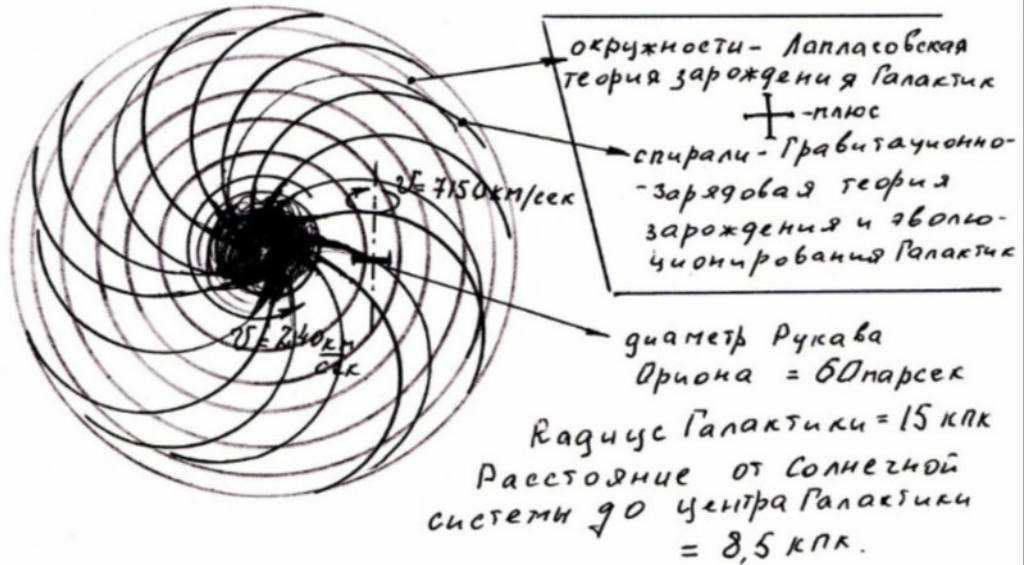 окружности - Лапласовская
теория зарождения Галактик
+ - плюс
спирали - Гравитационно-
- зарядовая теория
зарождения и эволю-
ционирования Галактик
v = 7150 км/сек
v = 240 км/сек
диаметр Рукава
Ориона = 60 парсек
Радиус Галактики = 15 кпк
Расстояние от Солнечной
системы до центра Галактики
= 8,5 кпк.